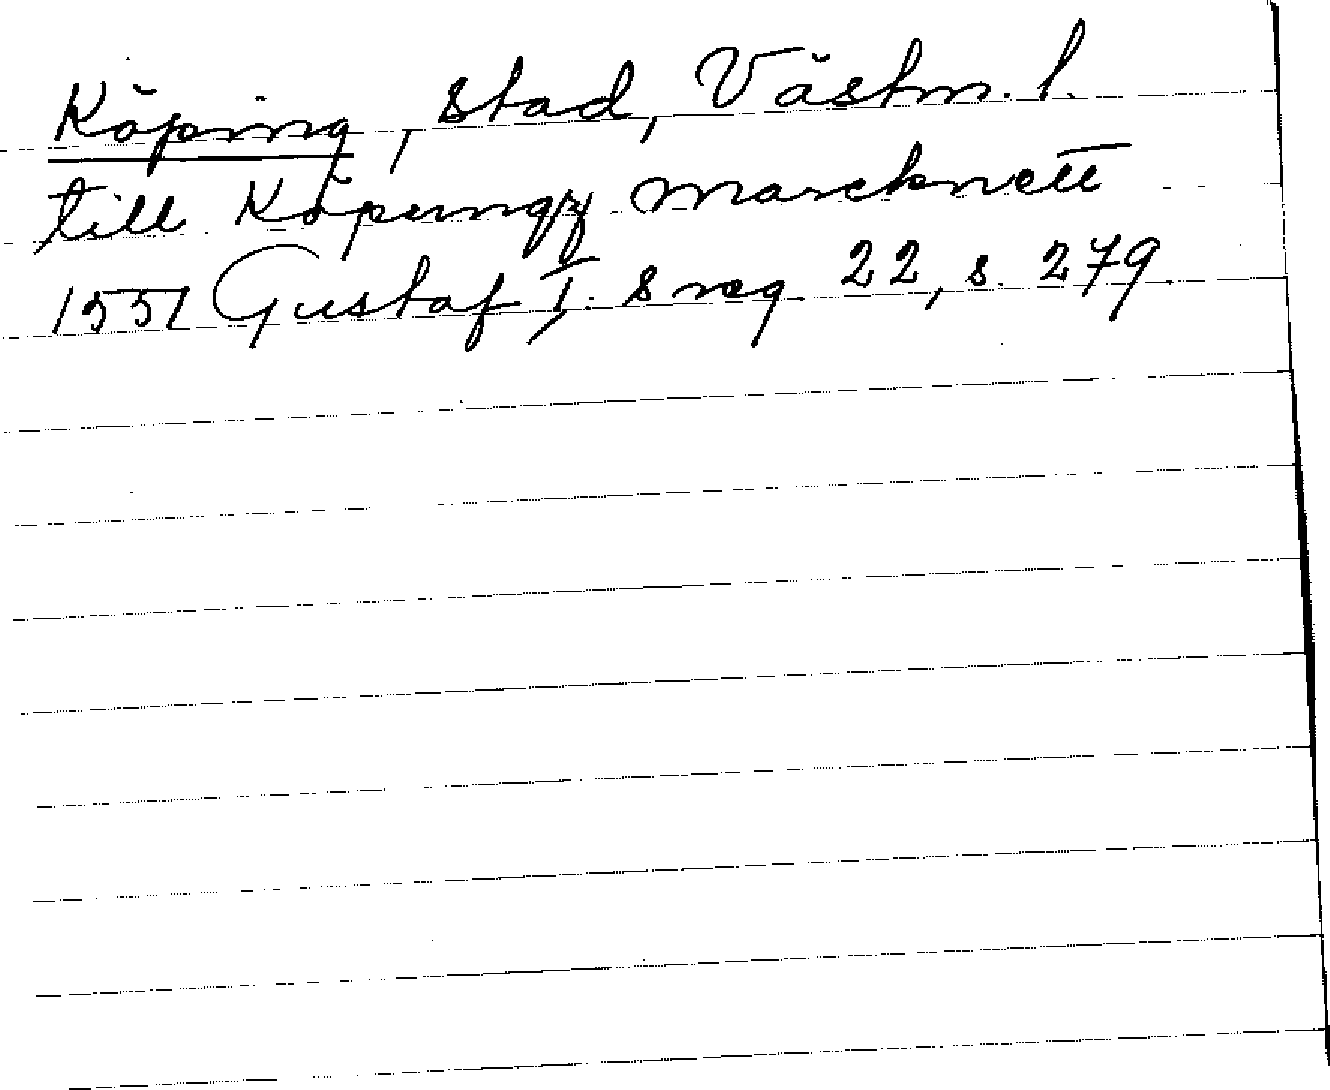 Köping, stad, Västm. l.
till Köpungz marcknett
1551 Gustaf I:s reg 22, s. 279